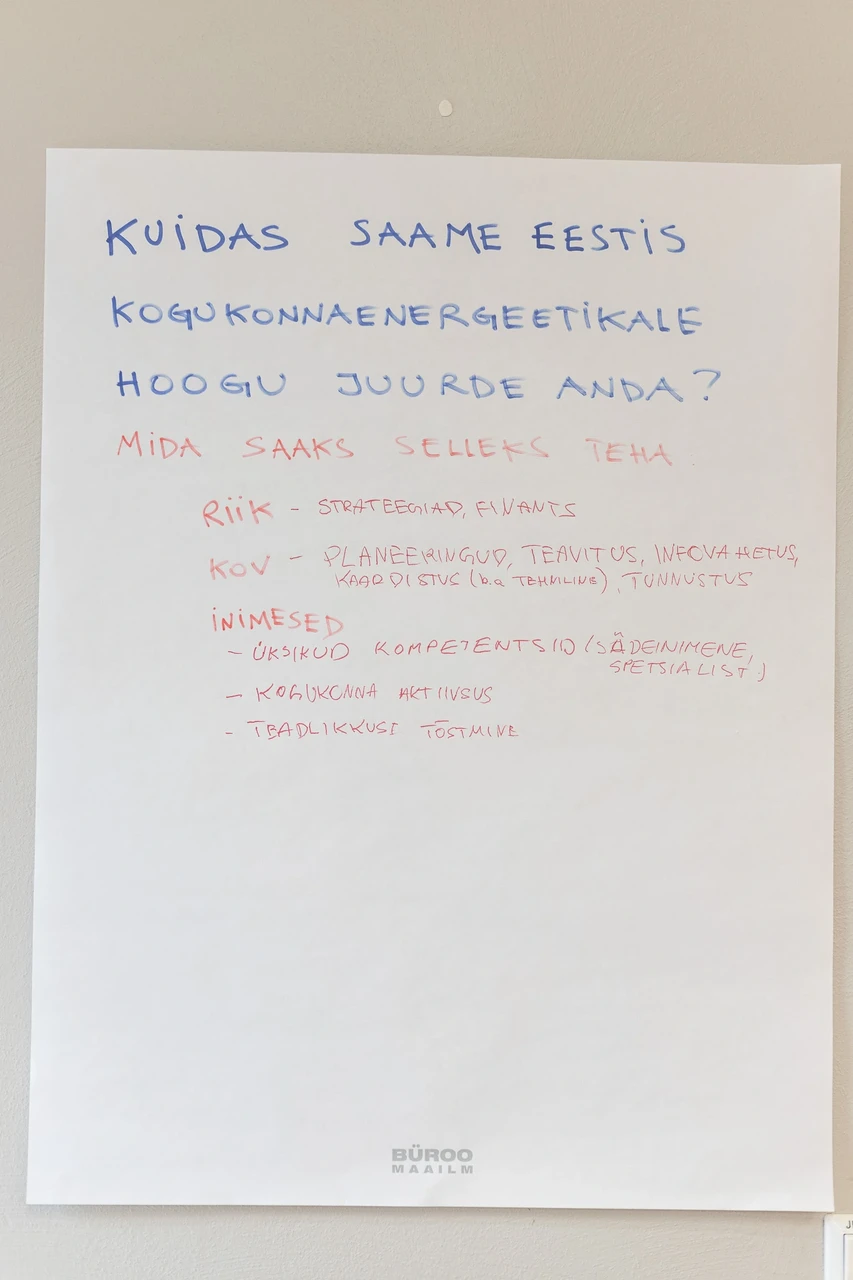 KUIDAS SAAME EESTIS
KOGUKONNAENERGEETIKALE
HOOGU JUURDE ANDA?
MIDA SAAKS SELLEKS TEHA
RIIK - STRATEEGIAD, FINANTS
KOV - PLANEERINGUD, TEAVITUS, INFOVAHETUS,
KAARDISTUS (b.a TEHNILINE), TUNNUSTUS
INIMESED
- ÜKSIKUD KOMPETENTSID (SÄDEINIMENE,
SPETSIALIST)
- KOGUKONNA AKTIIVSUS
- TEADLIKKUSE TÕSTMINE
BÜROO
MAAILM